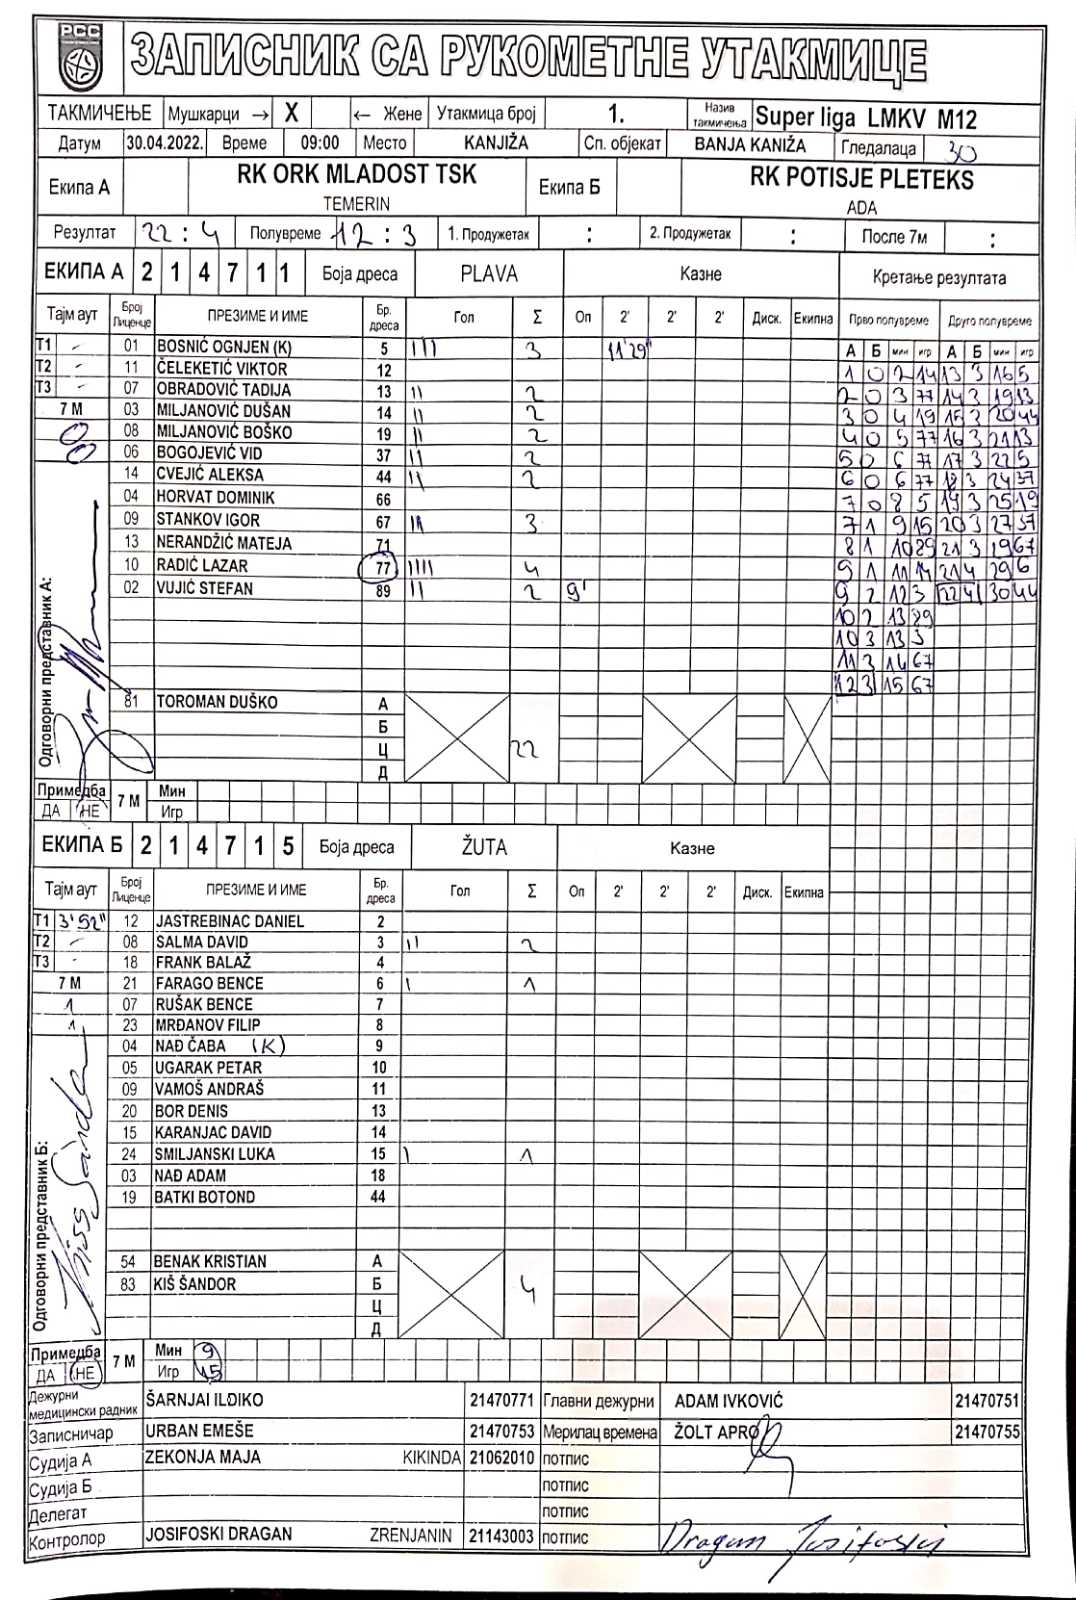 РСС
ЗАПИСНИК СА РУКОМЕТНЕ УТАКМИЦЕ
ТАКМИЧЕЊЕ Мушкарци → X ← Жене Утакмица број 1. Назив такмичења Super liga LMKV M12
Датум 30.04.2022. Време 09:00 Место KANJIŽA Сп. објекат BANJA KANIŽA Гледалаца 30
Екипа А RK ORK MLADOST TSK Екипа Б RK POTISJE PLETEKS
TEMERIN ADA
Резултат 22 : 4 Полувреме 12 : 3 1. Продужетак : 2. Продужетак : После 7м :
ЕКИПА А 2 1 4 7 1 1 Боја дреса PLAVA Казне Кретање резултата
Тајм аут Број Лиценце ПРЕЗИМЕ И ИМЕ Бр. дреса Гол Σ Оп 2' 2' 2' Диск. Екипна Прво полувреме Друго полувреме
А Б мин игр А Б мин игр
T1 - 01 BOSNIĆ OGNJEN (K) 5 III 3 11'29"
T2 - 11 ČELEKETIĆ VIKTOR 12 1 0 2 14 13 3 16 5
T3 - 07 OBRADOVIĆ TADIJA 13 II 2 2 0 3 77 14 3 19 13
7 М 03 MILJANOVIĆ DUŠAN 14 II 2 3 0 4 19 15 3 20 44
0 08 MILJANOVIĆ BOŠKO 19 II 2 4 0 5 77 16 3 21 13
0 06 BOGOJEVIĆ VID 37 II 2 5 0 6 77 17 3 22 5
14 CVEJIĆ ALEKSA 44 II 2 6 0 6 77 18 3 24 37
04 HORVAT DOMINIK 66 7 0 8 5 19 3 25 19
09 STANKOV IGOR 67 III 3 7 1 9 15 20 3 27 37
13 NERANDŽIĆ MATEJA 71 8 1 10 89 21 3 19 67
10 RADIĆ LAZAR 77 IIII 4 9 1 11 14 21 4 29 6
02 VUJIĆ STEFAN 89 II 2 9' 9 2 12 3 22 4 30 44
10 2 13 89
10 3 13 3
11 3 14 67
12 3 15 67
Одговорни представник А:
81 TOROMAN DUŠKO А
Б
Ц 22
Д
Примедба ДА НЕ 7 М Мин
Игр
ЕКИПА Б 2 1 4 7 1 5 Боја дреса ŽUTA Казне
Тајм аут Број Лиценце ПРЕЗИМЕ И ИМЕ Бр. дреса Гол Σ Оп 2' 2' 2' Диск. Екипна
T1 3'52" 12 JASTREBINAC DANIEL 2
T2 - 08 SALMA DAVID 3 II 2
T3 - 18 FRANK BALAŽ 4
7 М 21 FARAGO BENCE 6 I 1
1 07 RUŠAK BENCE 7
1 23 MRĐANOV FILIP 8
04 NAĐ ČABA (K) 9
05 UGARAK PETAR 10
09 VAMOŠ ANDRAŠ 11
20 BOR DENIS 13
15 KARANJAC DAVID 14
24 SMILJANSKI LUKA 15 I 1
03 NAĐ ADAM 18
19 BATKI BOTOND 44
Одговорни представник Б:
Kiss Sándor
54 BENAK KRISTIAN А
83 KIŠ ŠANDOR Б 4
Ц
Д
Примедба ДА НЕ 7 М Мин 9
Игр 15
Дежурни медицински радник ŠARNJAI ILDIKO 21470771 Главни дежурни ADAM IVKOVIĆ 21470751
Записничар URBAN EMEŠE 21470753 Мерилац времена ŽOLT APRO 21470755
Судија А ZEKONJA MAJA KIKINDA 21062010 потпис
Судија Б потпис
Делегат потпис
Контролор JOSIFOSKI DRAGAN ZRENJANIN 21143003 потпис Dragan Josifoski